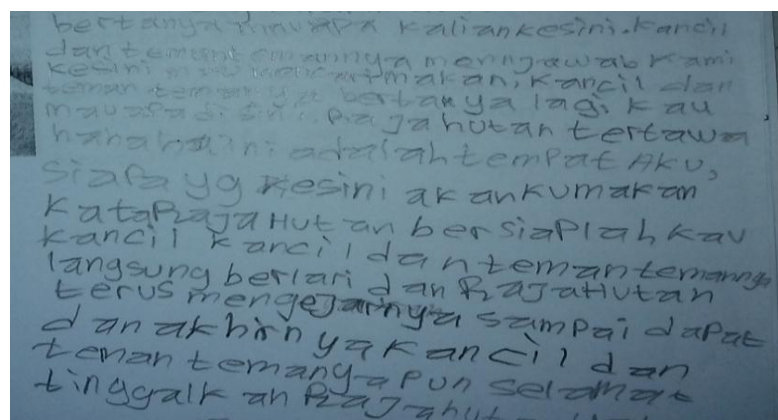 bertanya mau apa kalian kesini. kancil
dan teman temannya mennjawab kami
kesini mau mencari makan, kancil dan
teman temannya bertanya lagi kau
mau apa di sini. Raja hutan tertawa
hahaha ini adalah tempat AKU,
siapa yg kesini akan kumakan
kata Raja Hutan bersiaplah kau
kancil kancil dan teman temannya
langsung berlari dan Raja Hutan
terus mengejarnya sampai dapat
dan akhirnya kancil dan
teman temanya pun selamat
tinggalkan Raja hut